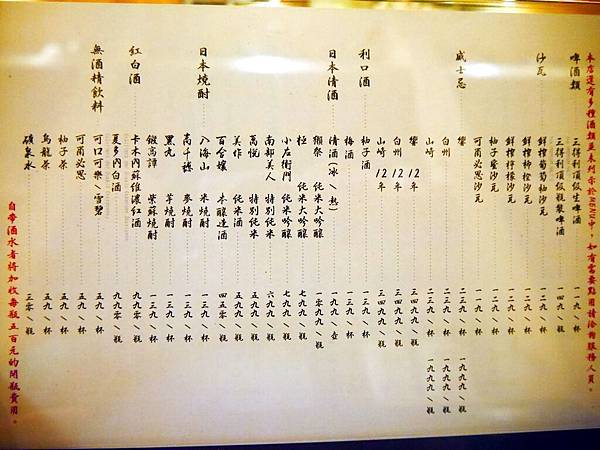 本店還有多種酒類並未列示於MENU中，如有需要點用請洽詢服務人員。
啤酒類
三得利頂級生啤酒 一一九／杯
三得利頂級瓶裝啤酒 一四九／瓶
沙瓦
鮮搾葡萄柚沙瓦 一二九／杯
鮮搾柳橙沙瓦 一二九／杯
鮮搾檸檬沙瓦 一二九／杯
柚子蜜沙瓦 一一九／杯
可爾必思沙瓦 一一九／杯
威士忌
響 二三九／杯 一九九九／瓶
白州 二三九／杯 一九九九／瓶
山崎 二三九／杯 一九九九／瓶
響 12年 三四九九／瓶
白州 12年 三四九九／瓶
山崎 12年 三四九九／瓶
利口酒
柚子酒 一三九／杯
梅酒 一三九／杯
日本清酒
清酒（冰／熱） 一九九／壺
獺祭 純米大吟釀 一零九九／瓶
極 純米大吟釀 七九九／瓶
小左衛門 純米吟釀 七九九／瓶
南部美人 特別純米 六九九／瓶
萬悅 特別純米 五九九／瓶
美作 純米酒 五九九／瓶
百合孃 本釀造酒 四五零／瓶
日本燒酎
八海山 米燒酎 一三九／杯
高千穗 麥燒酎 一三九／杯
黑丸 芋燒酎 一三九／杯
鍛高譚 紫蘇燒酎 一三九／杯
紅白酒
卡本內蘇維濃紅酒 九九零／瓶
夏多內白酒 九九零／瓶
無酒精飲料
可口可樂／雪碧 五九／杯
可爾必思 五九／杯
柚子茶 五九／杯
烏龍茶 五九／杯
礦泉水 三零／瓶
自帶酒水者將加收每瓶五百元的開瓶費用。